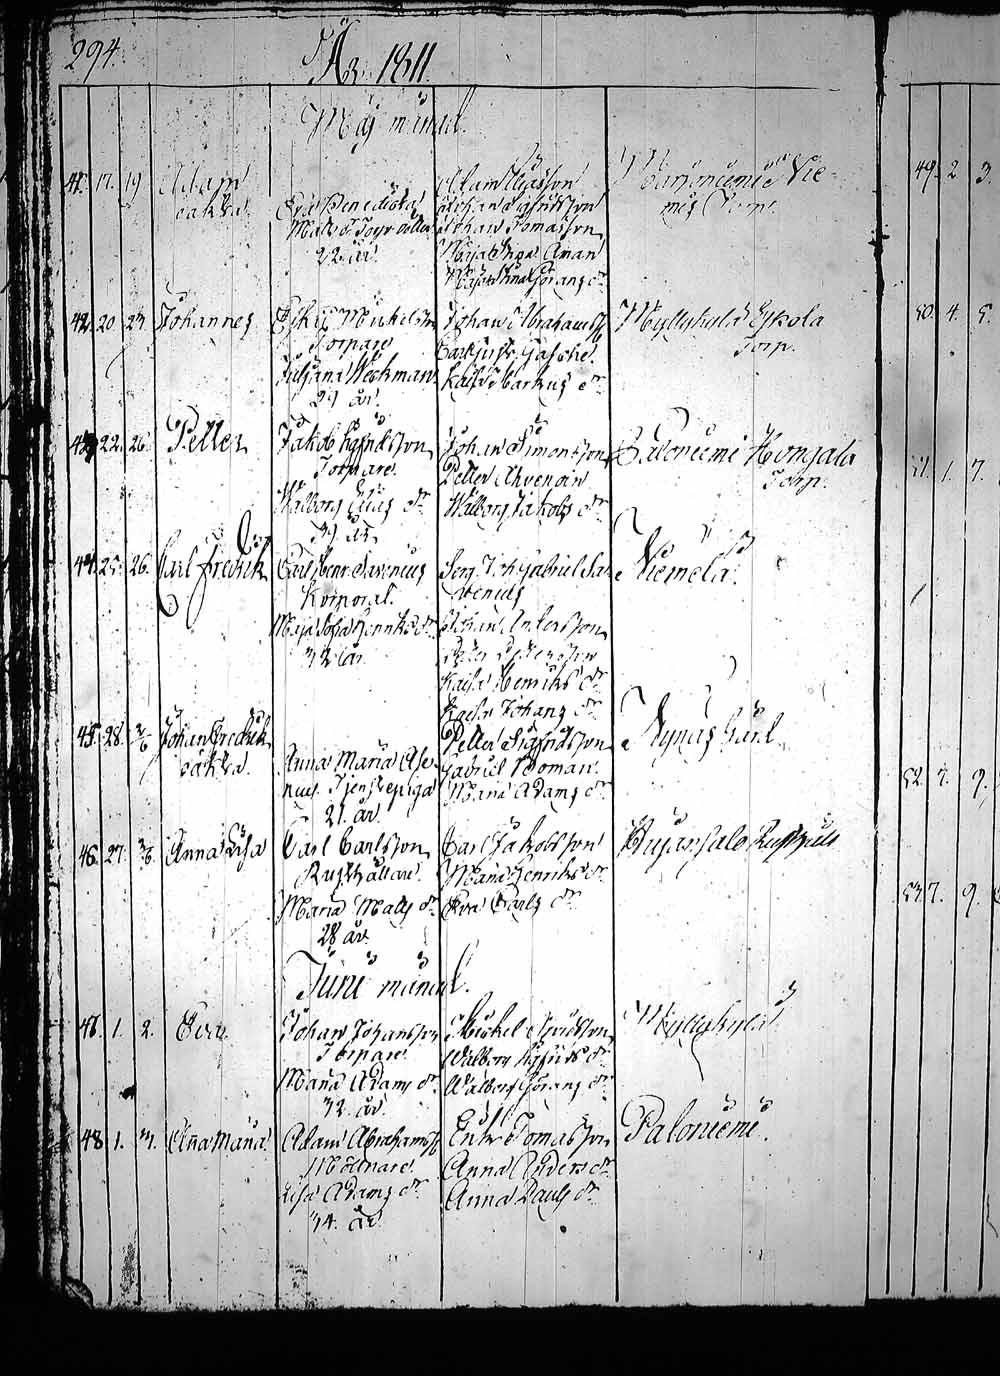 294.
År 1811
Maj månad.
41. 17. 19 Adam
oäkta.
Eva Benedicta
Mats dr
22 år
Adam
Johan Sigfridsson
Johan Tomasson
Maja Stina Aman
Maja Stina Görans dr
Torp.
42. 20. 23. Johannes
Michelss.
Torpare
Juliana Weckman
29 år.
Johan Abrahamss.
Kaisa Markus dr
Myllykylä Eskola
Torp.
43. 22. 26. Petter
Jakob Sigfridsson
Torpare.
Walborg Elias dr
39 år
Johan Simonsson
Petter Ahvenain
Walborg Jakobs dr
Saloniemi
Torp.
44. 25. 26. Carl Fredrik
Carl Henr. Savenius
Korporal.
Maja Sofia Henriks dr
32 år.
Serg. Joh Gabriel Sa-
venius
Johan Andersson
Petter
Kaisa Henriks dr
Kaisa Johans dr
Niemelä.
45. 28. 2/6 Johan Fredrik
oäkta.
Anna Maria Ale-
nius Tjenstepiga
21. år.
Petter Sigfridsson
Gabriel Boman.
Maria Adams dr
Nynäs Gård.
46. 27. 2/6. Anna Lisa
Carl Carlsson
Rusthållare.
Maria Mats dr
28 år.
Carl Jakobsson
Maria Henriks dr
Eva Carls dr
Kujansalo Rusthåll
Juni månad.
47. 1. 2. Eva
Johan Johansson
Torpare.
Maria Adams dr
32. år.
Michel
Walborg Sigfrids dr
Walborg Görans dr
Myllykylä
48. 1. 3. Anna Maria
Adam Abrahamss.
Mölnare.
Lisa Adams dr
34. år.
Eric Tomasson
Anna Anders dr
Anna Pauls dr
Paloniemi.
49. 2 3.
50. 4. 5.
51. 1. 7.
52. 7. 9.
53. 7. 9.